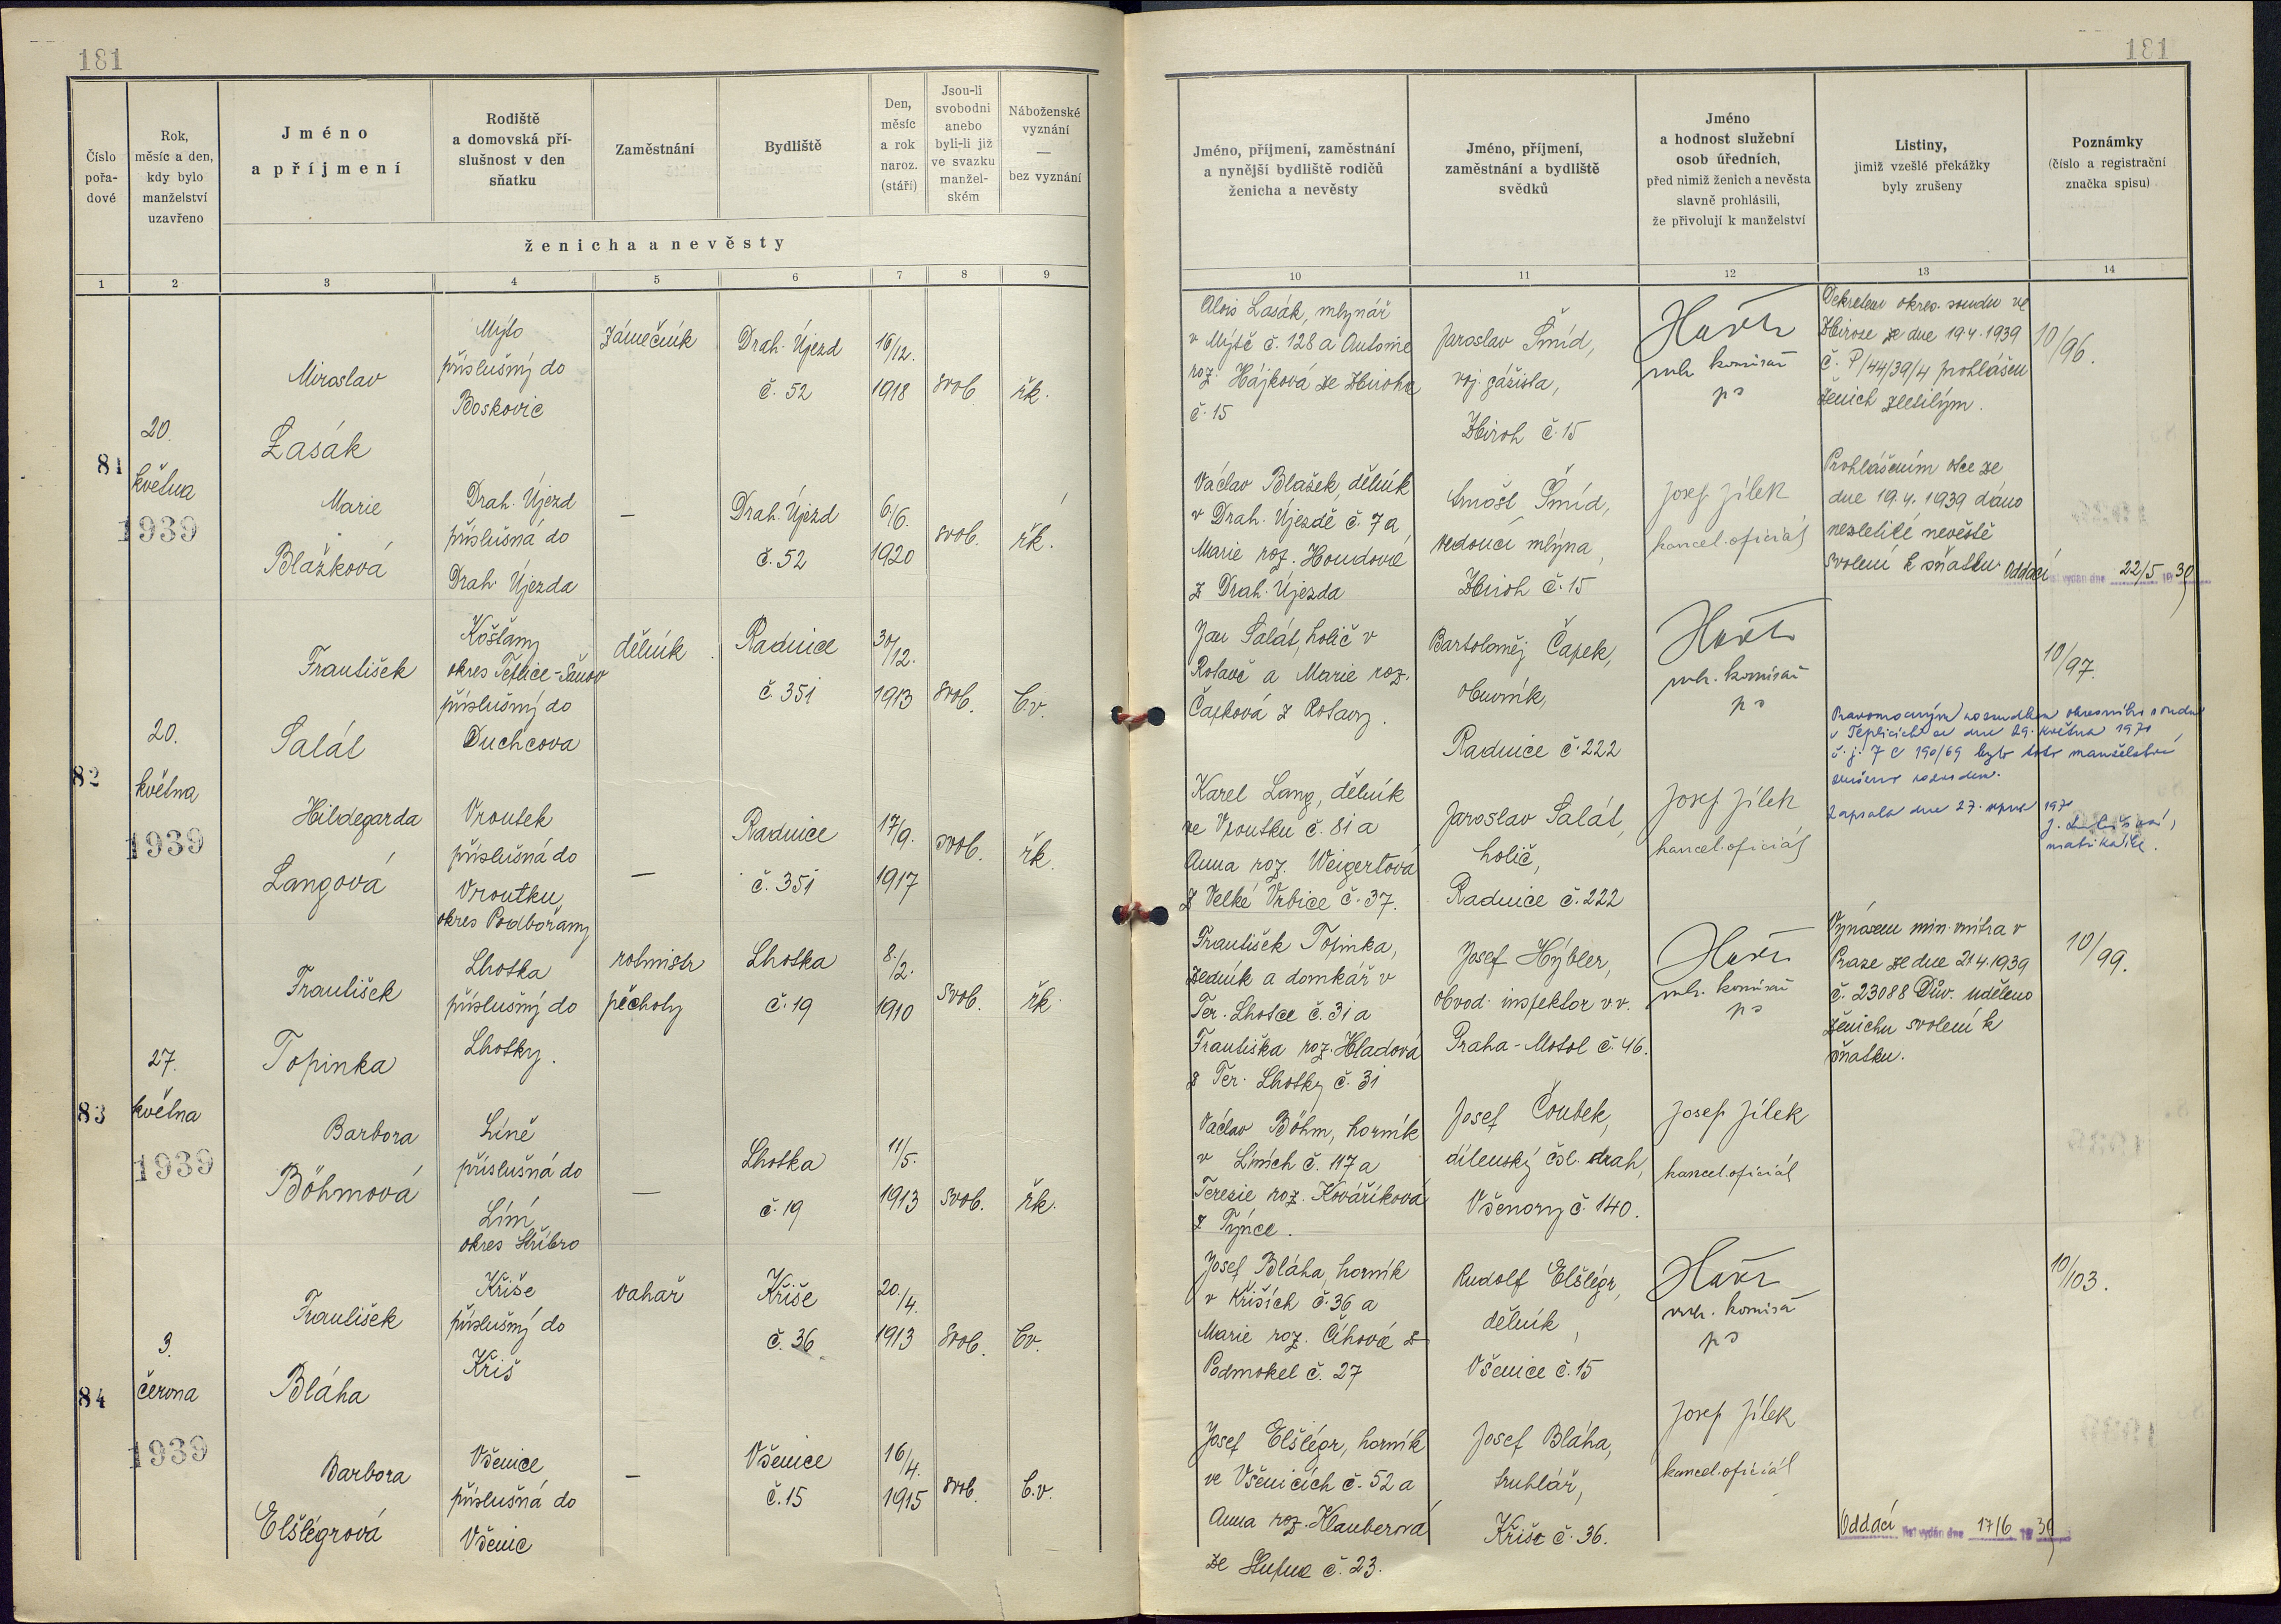 181
181
Číslo
pořa-
dové
Rok,
měsíc a den,
kdy bylo
manželství
uzavřeno
Jméno
a příjmení
Rodiště
a domovská pří-
slušnost v den
sňatku
Zaměstnání
Bydliště
Den,
měsíc
a rok
naroz.
(stáří)
Jsou-li
svobodni
anebo
byli-li již
ve svazku
manžel-
ském
Náboženské
vyznání
—
bez vyznání
ženicha a nevěsty
Jméno, příjmení, zaměstnání
a nynější bydliště rodičů
ženicha a nevěsty
Jméno, příjmení,
zaměstnání a bydliště
svědků
Jméno
a hodnost služební
osob úředních,
před nimiž ženich a nevěsta
slavně prohlásili,
že přivolují k manželství
Listiny,
jimiž vzešlé překážky
byly zrušeny
Poznámky
(číslo a registrační
značka spisu)
1 2 3 4 5 6 7 8 9 10 11 12 13 14
81
20.
května
1939
Miroslav
Lasák
Mýto
příslušný do
Boskovic
zámečník
Drah. Újezd
č. 52
16/12.
1918
svob
řk.
Marie
Blažková
Drah. Újezd
příslušná do
Drah. Újezda
—
Drah. Újezd
č. 52
6/6.
1920
svob.
řk.
Alois Lasák, mlynář
v Mýtě č. 128 a Antonie
roz. Hájková ze Zbiroha
č. 15
Jaroslav Šmíd,
voj. gážista,
Zbiroh č. 15
vrch. komisař
ps
Dekretem okres. soudu ve
Zbiroze ze dne 19.4.1939
č. P/44/39/4 prohlášen
ženich zletilým.
10/96.
Václav Blažek, dělník
v Drah. Újezdě č. 7 a
Marie roz. Houdová
z Drah. Újezda
Arnošt Šmíd,
vedoucí mlýna,
Zbiroh č. 15
Josef Jílek
kancel. oficiál
Prohlášením otce ze
dne 19.4.1939 dáno
nezletilé nevěstě
svolení k sňatku.
Oddací list vydán dne 22/5 1939
82
20.
května
1939
František
Salát
Košťany
okres Teplice-Šanov
příslušný do
Duchcova
dělník
Radnice
č. 351
30/12.
1913
svob.
b.v.
Hildegarda
Langová
Vroutek
příslušná do
Vroutku,
okres Podbořany
—
Radnice
č. 351
17/9.
1917
svob.
řk.
Jan Salát, holič v
Rotavě a Marie roz.
Čapková z Rotavy.
Bartoloměj Čapek,
obuvník,
Radnice č. 222
vrch. komisař
ps
10/97.
Pravomocným rozsudkem okresního soudu
v Teplicích ze dne 29. května 1970
č.j. 7 C 190/69 bylo toto manželství
zrušeno rozvodem.
Zapsala dne 27. srpna 1970
matrikářka.
Karel Lang, dělník
ve Vroutku č. 81 a
Anna roz. Weigertová
z Velké Vrbice č. 37.
Jaroslav Salát,
holič,
Radnice č. 222
Josef Jílek
kancel. oficiál
83
27.
května
1939
František
Topinka
Lhotka
příslušný do
Lhotky.
rotmistr
pěchoty
Lhotka
č. 19
8./2.
1910
svob.
řk.
Barbora
Böhmová
Líně
příslušná do
Líní,
okres Stříbro
—
Lhotka
č. 19
11/5.
1913
svob.
řk.
František Topinka,
zedník a domkář v
Ter. Lhotce č. 31 a
Františka roz. Hladová
z Ter. Lhotky č. 31
Josef Hýbler,
obvod. inspektor v.v.
Praha-Motol č. 46.
vrch. komisař
ps
Výnosem min. vnitra v
Praze ze dne 21.4.1939
č. 23088 Dův. uděleno
ženichu svolení k
sňatku.
10/99.
Václav Böhm, horník
v Líních č. 117 a
Terezie roz. Kováříková
z Týnce.
Josef Čoubek,
dílenský čsl. drah,
Všenory č. 140.
Josef Jílek
kancel. oficiál
84
3.
června
1939
František
Bláha
Kříše
příslušný do
Kříš
vahař
Kříše
č. 36
20./4.
1913
svob.
bv.
Barbora
Elšlégrová
Všenice
příslušná do
Všenic
—
Všenice
č. 15
16/4.
1915
svob.
b.v.
Josef Bláha, horník
v Kříších č. 36 a
Marie roz. Číhová z
Podmokel č. 27
Rudolf Elšlégr,
dělník,
Všenice č. 15
vrch. komisař
ps
10/103.
Josef Elšlégr, horník
ve Všenicích č. 52 a
Anna roz. Klauberová
ze Stupna č. 23.
Josef Bláha,
truhlář,
Kříše č. 36.
Josef Jílek
kancel. oficiál
Oddací list vydán dne 17/6 1939